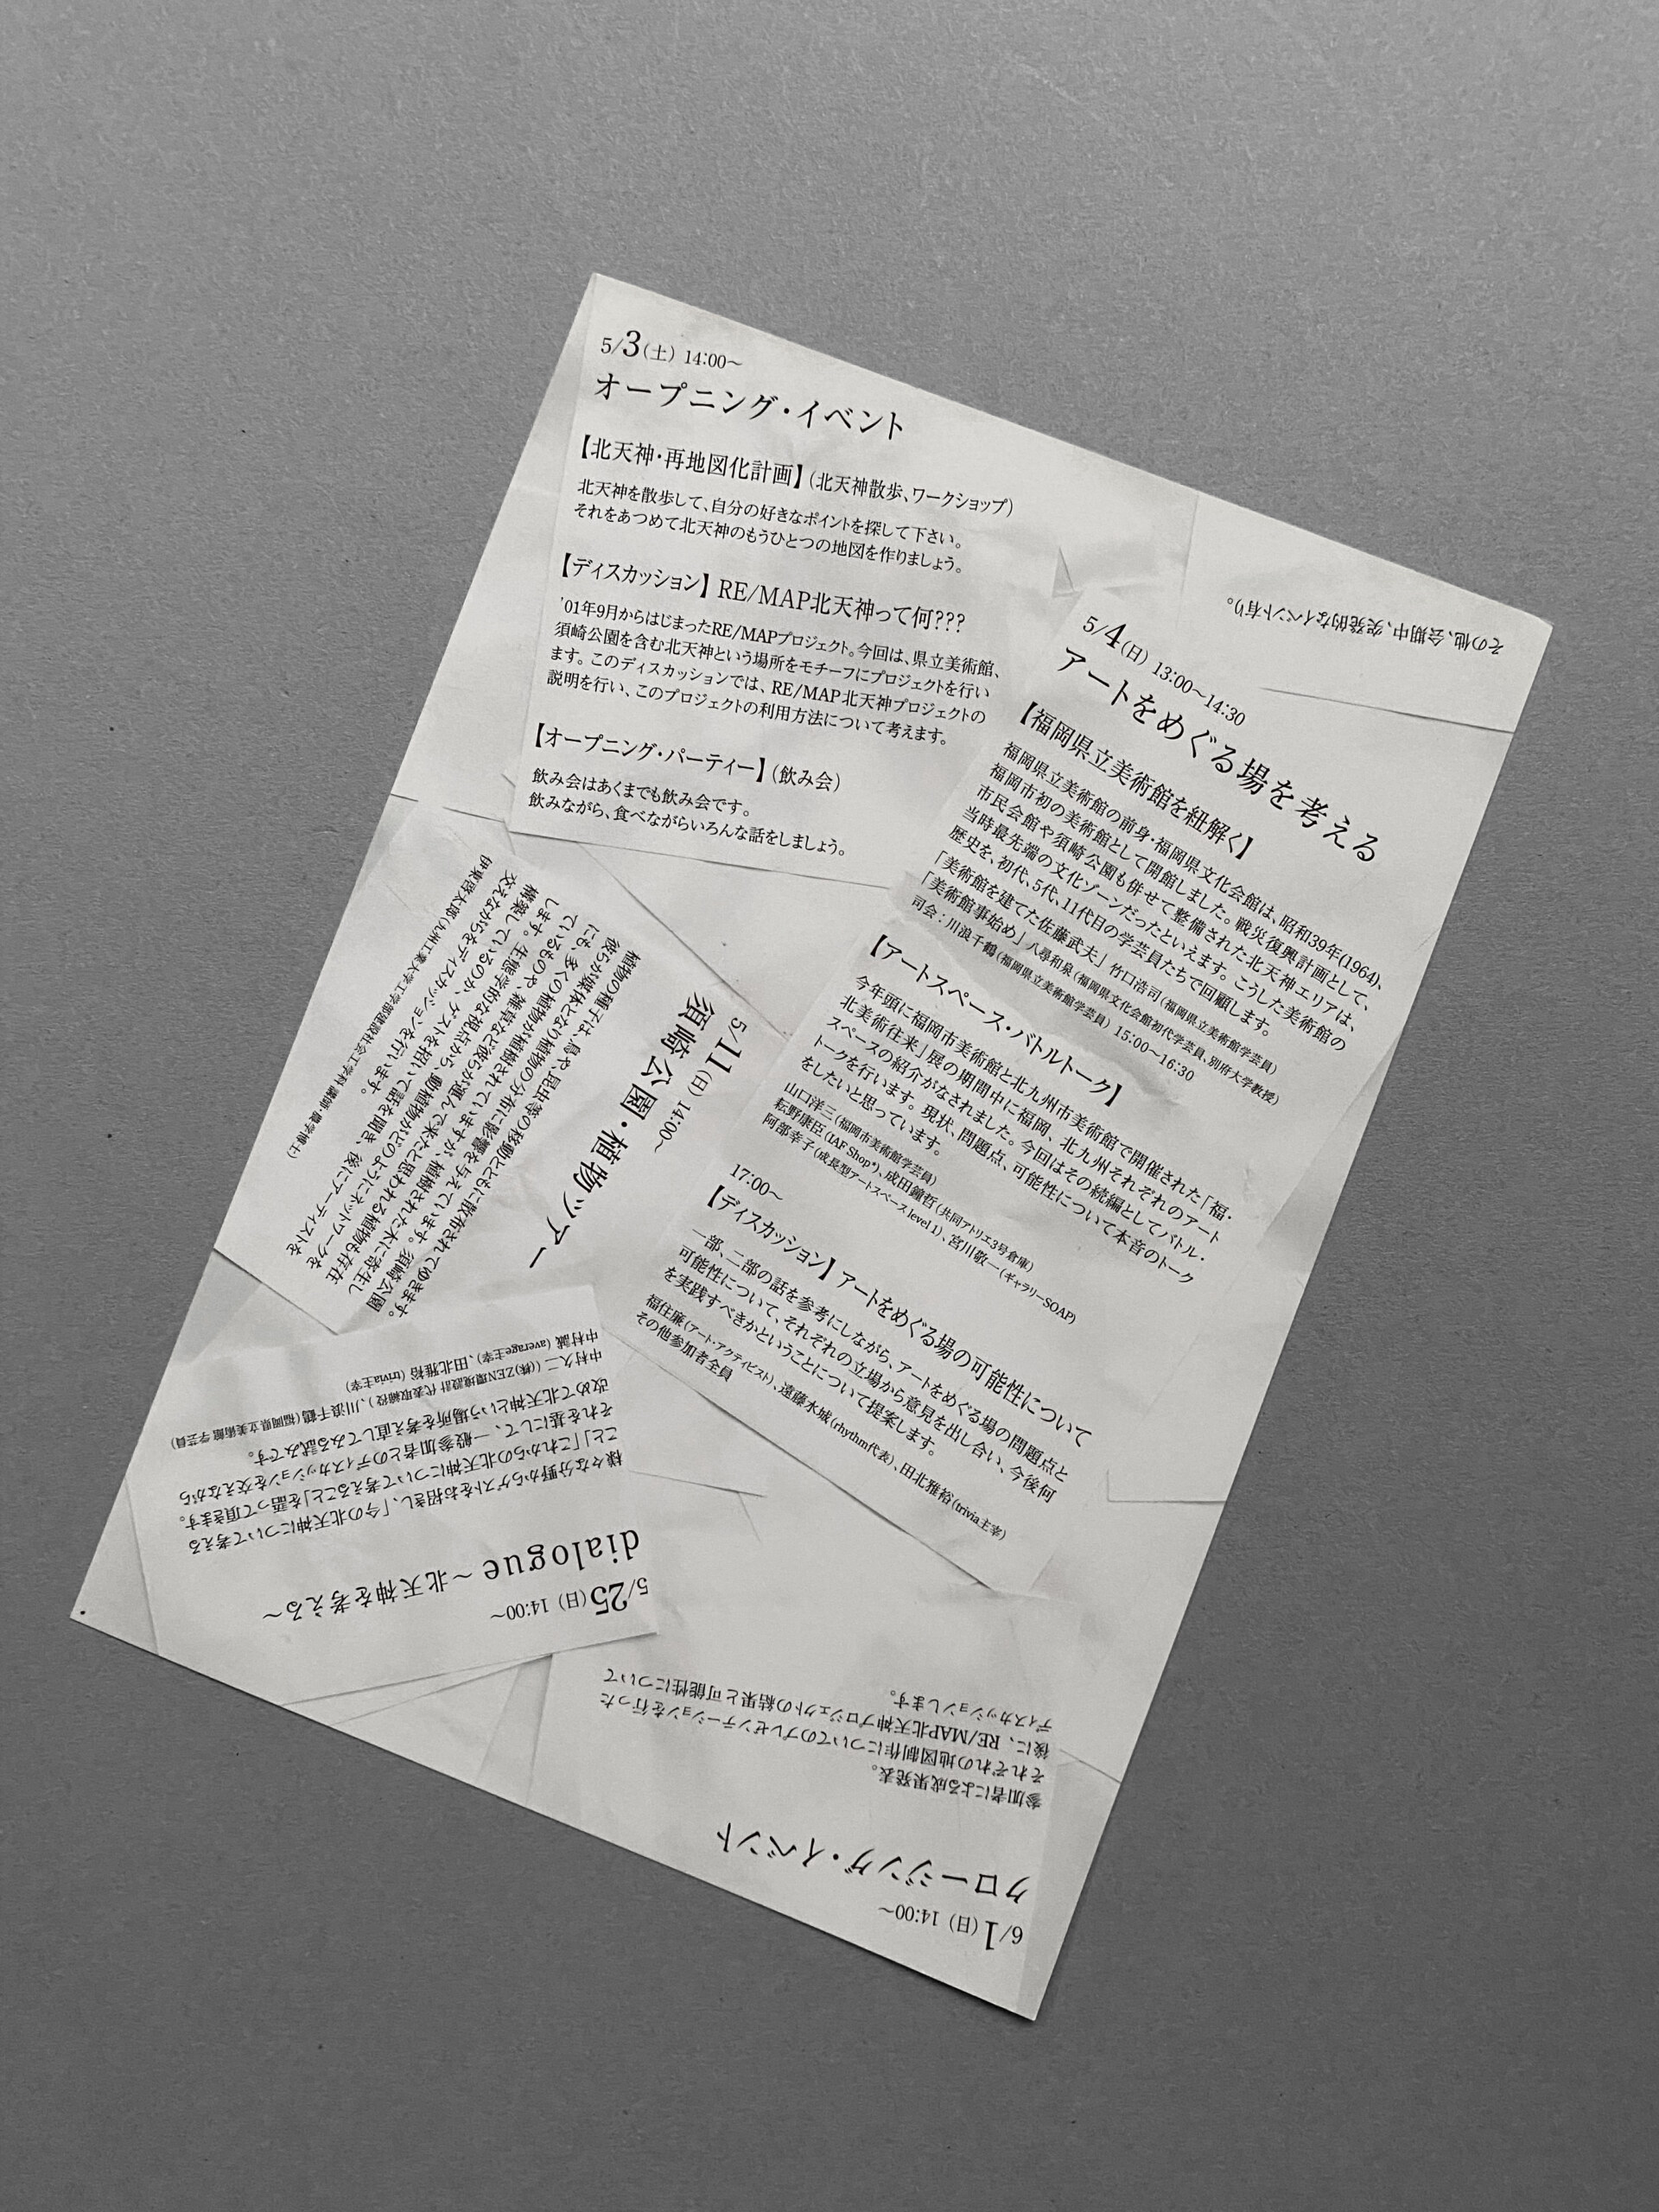 5/3(土) 14:00〜
オープニング・イベント
【北天神・再地図化計画】(北天神散歩、ワークショップ)
北天神を散歩して、自分の好きなポイントを探して下さい。
それをあつめて北天神のもうひとつの地図を作りましょう。
【ディスカッション】RE/MAP北天神って何???
'01年9月からはじまったRE/MAPプロジェクト。今回は、県立美術館、
須崎公園を含む北天神という場所をモチーフにプロジェクトを行い
ます。このディスカッションでは、RE/MAP北天神プロジェクトの
説明を行い、このプロジェクトの利用方法について考えます。
【オープニング・パーティー】(飲み会)
飲み会はあくまでも飲み会です。
飲みながら、食べながらいろんな話をしましょう。
その他、会期中、突発的なイベント有り。
5/4(日) 13:00〜14:30
アートをめぐる場を考える
【福岡県立美術館を紐解く】
福岡県立美術館の前身・福岡県文化会館は、昭和39年(1964)、
福岡市初の美術館として開館しました。戦災復興計画として、
市民会館や須崎公園も併せて整備された北天神エリアは、
当時最先端の文化ゾーンだったといえます。こうした美術館の
歴史を、初代、5代、11代目の学芸員たちで回顧します。
「美術館を建てた佐藤武夫」竹口浩司(福岡県立美術館学芸員)
「美術館事始め」八尋和泉(福岡県文化会館初代学芸員、別府大学教授)
司会：川浪千鶴(福岡県立美術館学芸員) 15:00〜16:30
【アートスペース・バトルトーク】
今年頭に福岡市美術館と北九州市美術館で開催された「福・
北美術往来」展の期間中に福岡、北九州それぞれのアート
スペースの紹介がなされました。今回はその続編としてバトル・
トークを行います。現状、問題点、可能性について本音のトーク
をしたいと思っています。
山口洋三(福岡市美術館学芸員)
耘野康臣(IAF Shop*)、成田鐘哲(共同アトリエ3号倉庫)
阿部幸子(成長型アートスペースlevel 1)、宮川敬一(ギャラリーSOAP)
17:00〜
【ディスカッション】アートをめぐる場の可能性について
一部、二部の話を参考にしながら、アートをめぐる場の問題点と
可能性について、それぞれの立場から意見を出し合い、今後何
を実践すべきかということについて提案します。
福住廉(アート・アクティビスト)、遠藤水城(rhythm代表)、田北雅裕(trivia主宰)
その他参加者全員
5/11(日) 14:00〜
須崎公園・植物ツアー
植物の種子は、鳥や、昆虫等の移動とともに散布されてゆきます。
彼らが媒体となり植物の分布に影響を与えています。須崎公園
にも、多くの植物が植樹されていますが、植樹された木に寄生し
ているものや、雑草など彼らが運んで来たと思われる植物も存在
します。生態学的な視点から、動植物がどのようにネットワークを
構築しているのか、ゲストを招いて話を聞き、後にアーティストを
交えながらをディスカッションを行います。
伊東啓太郎(九州工業大学工学部建設社会工学科 講師・農学博士)
5/25(日) 14:00〜
dialogue 〜北天神を考える〜
様々な分野からゲストをお招きし、「今の北天神について考える
こと」「これからの北天神について考えること」を語って頂きます。
それを基にして、一般参加者とのディスカッションを交えながら
改めて北天神という場所を考え直してみる試みです。
中村久二((株)ZEN環境設計 代表取締役)、川浪千鶴(福岡県立美術館 学芸員)
中村誠(average主宰)、田北雅裕(trivia主宰)
6/1(日) 14:00〜
クロージング・イベント
参加者による成果発表。
それぞれの地図制作についてのプレゼンテーションを行った
後に、RE/MAP北天神プロジェクトの結果と可能性について
ディスカッションします。